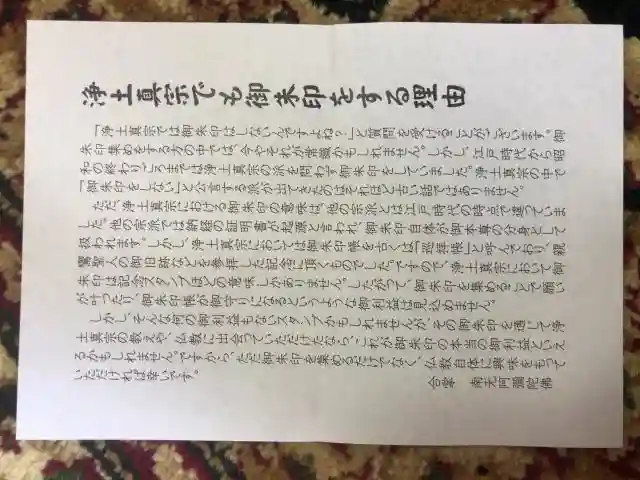 浄土真宗でも御朱印をする理由
「浄土真宗では御朱印はしないんですよね？」と質問を受けることがございます。御
朱印集めをする方の中では、今やそれが常識かもしれません。しかし、江戸時代から昭
和の終わりごろまでは浄土真宗の派を問わず御朱印をしていました。浄土真宗の中で
「御朱印をしない」と公言する派が出てきたのはそれほど古い話ではありません。
ただ、浄土真宗における御朱印の意味は、他の宗派とは江戸時代の時点で違っていま
した。他の宗派では納経の証明書が起源と言われ、御朱印自体が御本尊の分身として
扱われます。しかし、浄土真宗においては御朱印帳を古くは「巡拝帳」と呼んでおり、親
鸞聖人の御旧跡などを参拝した記念に頂くものでした。ですので、浄土真宗において御
朱印は記念スタンプほどの意味しかありません。したがって、御朱印を集めることで願い
が叶ったり、御朱印帳が御守りになるというような御利益は見込めません。
しかし、そんな何の御利益もないスタンプかもしれませんが、その御朱印を通して浄
土真宗の教えや、仏教に出会っていただけたなら、これが御朱印の本当の御利益といえ
るかもしれません。ですから、ただ御朱印を集めるだけでなく、仏教自体に興味をもって
いただければ幸いです。
合掌 南无阿彌陀佛